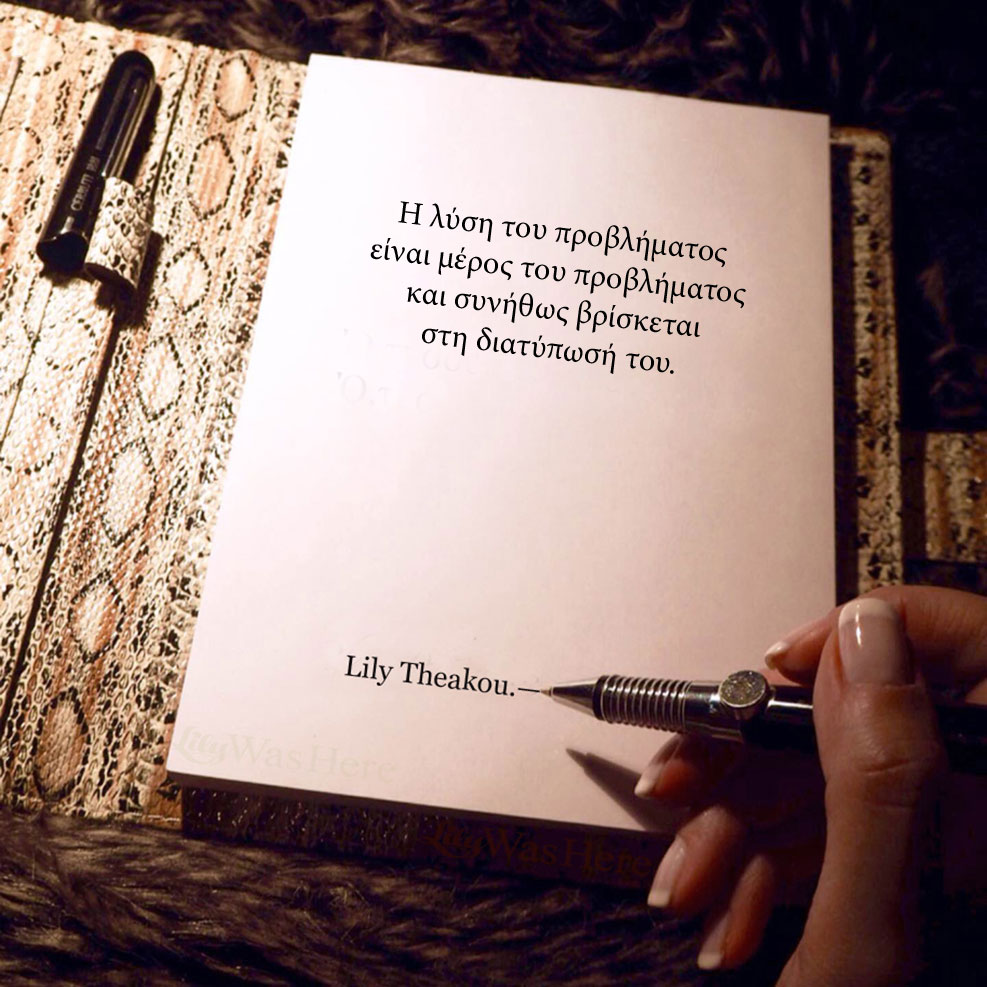 Η λύση του προβλήματος
είναι μέρος του προβλήματος
και συνήθως βρίσκεται
στη διατύπωσή του.
Lily Theakou.—
LilyWasHere
LilyWasHere
CERRUTI 1881